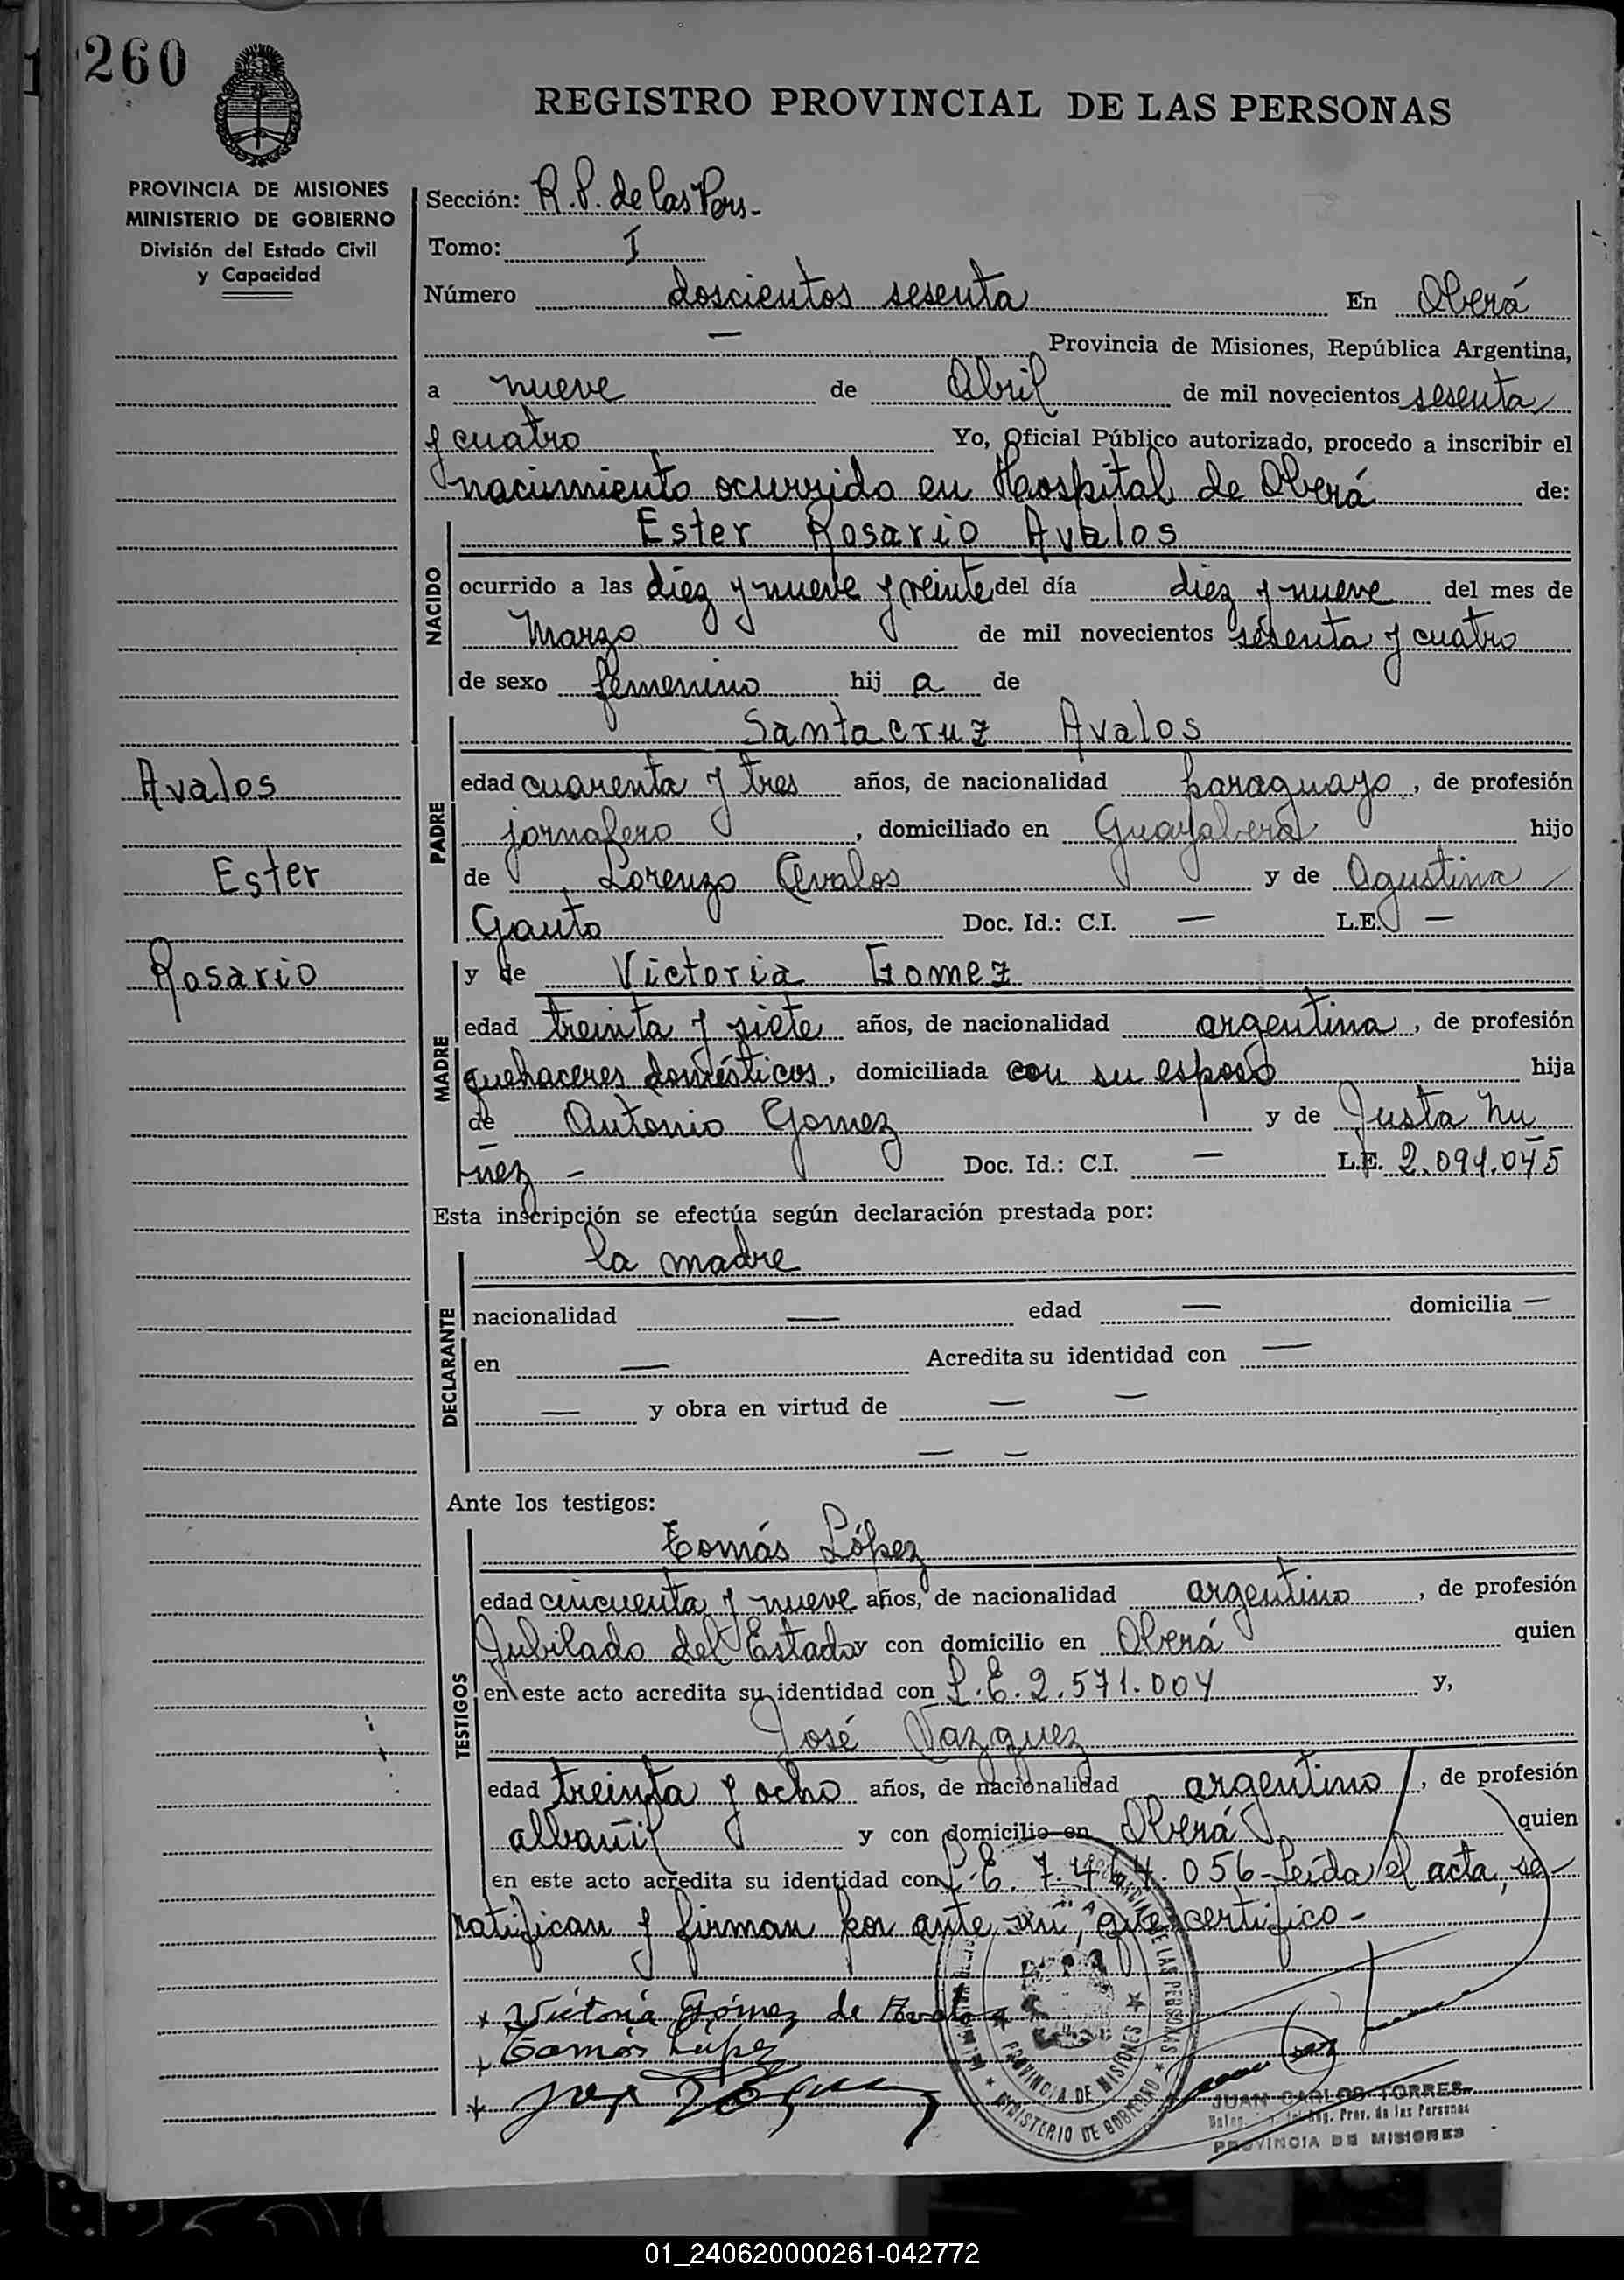 260
REGISTRO PROVINCIAL DE LAS PERSONAS
PROVINCIA DE MISIONES
MINISTERIO DE GOBIERNO
División del Estado Civil
y Capacidad
Sección: R.P. de las Pers.-
Tomo: I
Número doscientos sesenta En Oberá
— Provincia de Misiones, República Argentina,
a nueve de Abril de mil novecientos sesenta
y cuatro Yo, Oficial Público autorizado, procedo a inscribir el
nacimiento ocurrido en Haospital de Oberá de:
NACIDO
Ester Rosario Avalos
ocurrido a las diez y nueve y veinte del día diez y nueve del mes de
Marzo de mil novecientos sesenta y cuatro
de sexo femenino hij a de
Avalos
Ester
Rosario
PADRE
Santacruz Avalos
edad cuarenta y tres años, de nacionalidad paraguayo, de profesión
jornalero, domiciliado en Guayabera hijo
de Lorenzo Avalos y de Agustina
Gauto Doc. Id.: C.I. — L.E. —
MADRE
y de Victoria Gomez
edad treinta y siete años, de nacionalidad argentina, de profesión
quehaceres domésticos, domiciliada con su esposo hija
de Antonio Gomez y de Justa Nu
ñez – Doc. Id.: C.I. — L.E. 2.091.045
Esta inscripción se efectúa según declaración prestada por:
DECLARANTE
la madre
nacionalidad — edad — domicilia —
en — Acredita su identidad con —
— y obra en virtud de — —
— —
Ante los testigos:
TESTIGOS
Tomás López
edad cincuenta y nueve años, de nacionalidad argentino, de profesión
Jubilado del Estado y con domicilio en Oberá quien
en este acto acredita su identidad con L.E. 2.571.004 y,
José Vazquez
edad treinta y ocho años, de nacionalidad argentino, de profesión
albañil y con domicilio en Oberá quien
en este acto acredita su identidad con L.E. 056- Leída el acta, se-
ratifican y firman por ante mi, que certifico-
x Victoria Gómez de Avalos
x Tomás López
x
PROVINCIA DE MISIONES
MINISTERIO DE GOBIERNO
DE LAS PERSONAS
JUAN CARLOS TORRES
Reg. Prov. de las Personas
PROVINCIA DE MISIONES
01_240620000261-042772